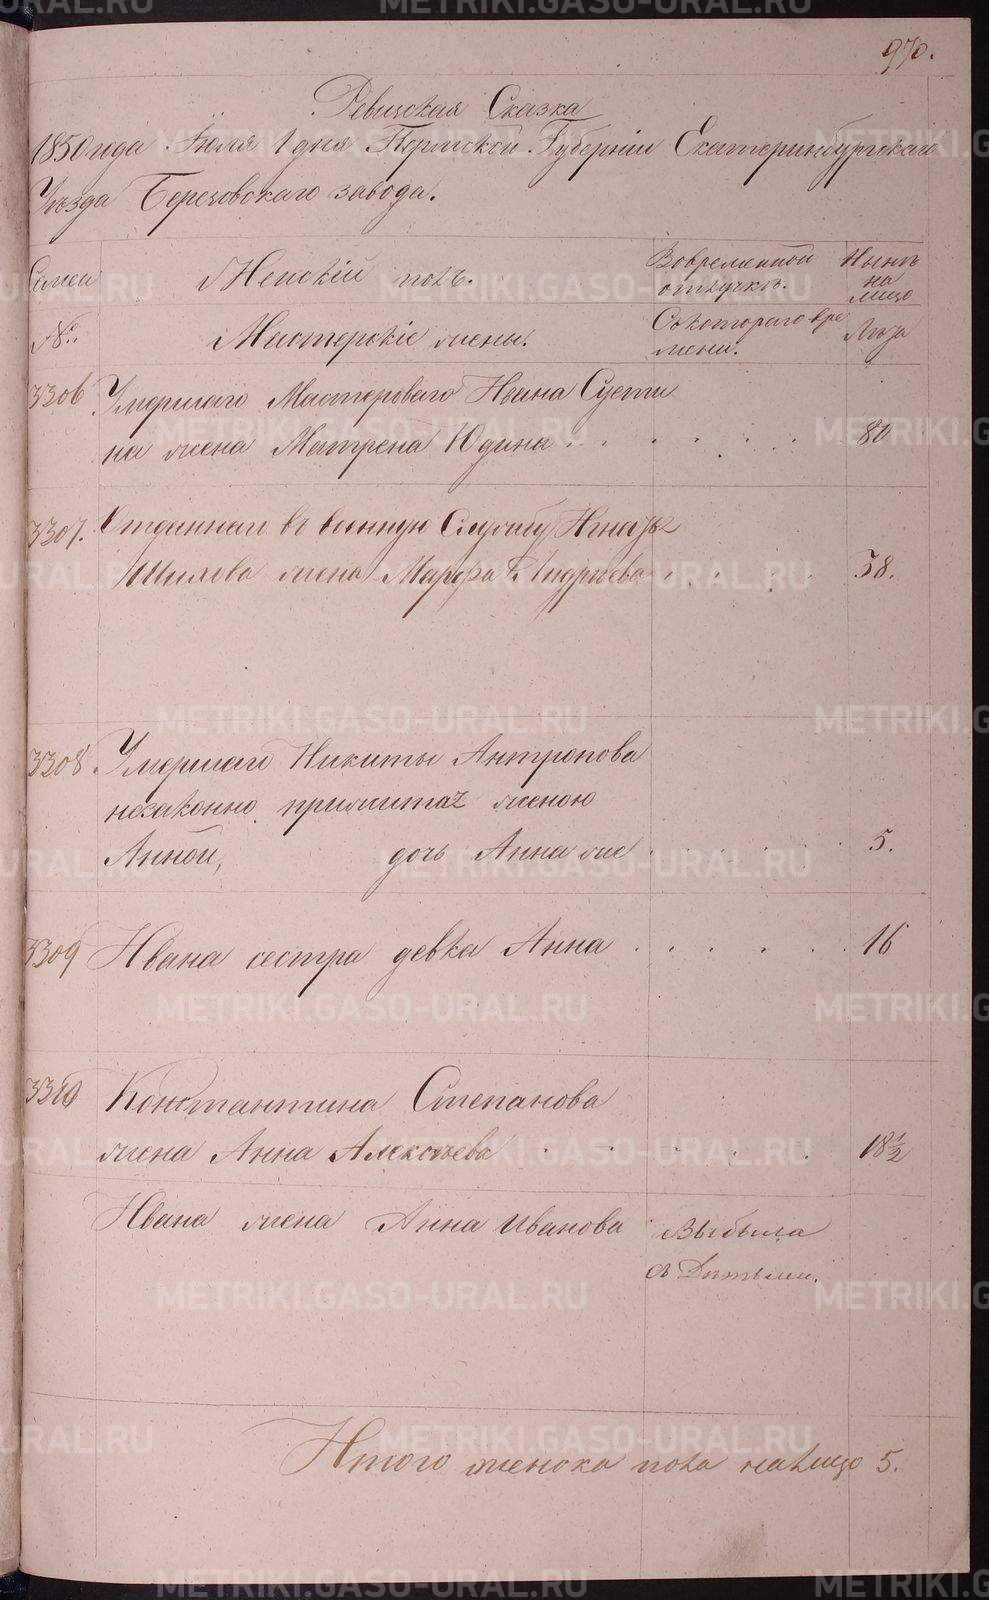 970.
Ревизская Сказка
1850 года Июля 1 дня Пермской Губерніи Екатеринбургскаго
Уѣзда Березовскаго завода.
Семьи
Женскій полъ.
Во временной
отлучкѣ.
Нынѣ
на
лицо
№.
Мастерскіе жены.
Съ котораго вре
мени.
Лѣта
3306
Умершаго Мастероваго Ивана Суети
на жена Матрена Юдина . . . . . . 80
3307.
Отданнаго въ военную Службу
Шиляева жена Марфа Андреева . . . . 58.
3308
Умершаго Никиты Антропова
незаконно прижитая женою
Анной, дочь Анна же . . . . . 5.
3309
Ивана сестра девка Анна . . . . . . 16
3310
Константина Степанова
жена Анна Алексѣева . . . . . 18½
Ивана жена Анна Иванова
Выбыла
съ Дѣтьми.
Итого женска пола на лицо 5.
METRIKI.GASO-URAL.RU